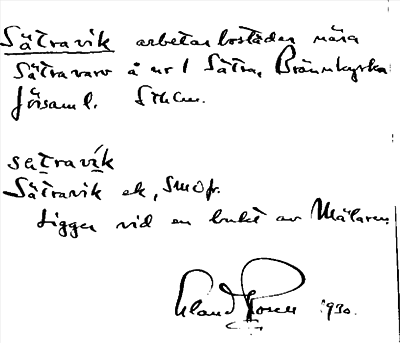 Sätravik arbetarbostäder nära
Sätravarv å nr 1 Sätra, Brännkyrka
församl. Sthlm.
sätravik
Sätravik ek, Smof.
Ligger vid en bukt av Mälaren
1930.